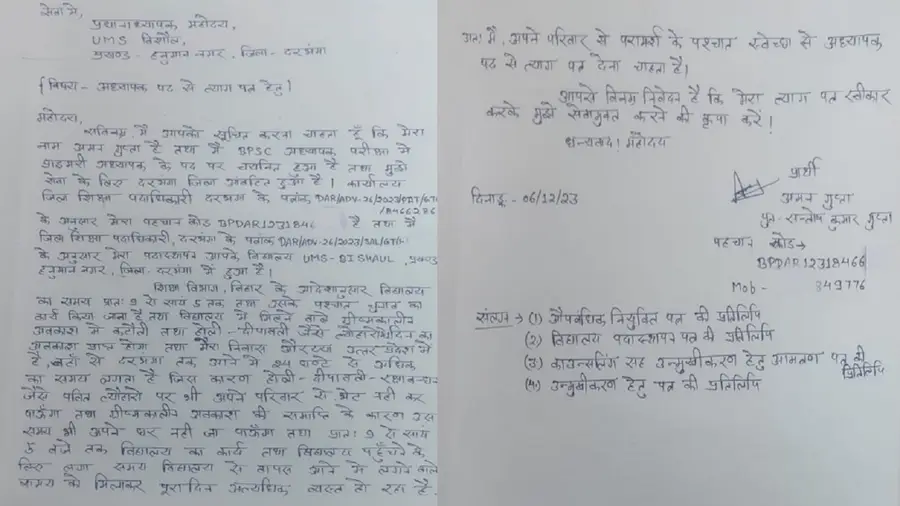 सेवा में,
प्रधानाध्यापक महोदय,
UMS बिशौल,
प्रखण्ड- हनुमान नगर, जिला- दरभंगा
विषय - अध्यापक पद से त्याग पत्र हेतु
महोदय,
सविनय, मैं आपको सूचित करना चाहता हूँ कि मेरा
नाम अमन गुप्ता है तथा मैं BPSC अध्यापक परीक्षा में
प्राइमरी अध्यापक के पद पर चयनित हुआ है तथा मुझे
सेवा के लिए दरभंगा जिला आवंटित हुआ है। कार्यालय
जिला शिक्षा पदाधिकारी दरभंगा के पत्रांक DAR/ADV-26/2023/
के अनुसार मेरा पहचान कोड BPDAR1231846 है तथा मैं
जिला शिक्षा पदाधिकारी, दरभंगा के पत्रांक DAR/ADV-26/2023/
के अनुसार मेरा पदास्थापन आपके विद्यालय UMS-BISHAUL,
हनुमान नगर, जिला- दरभंगा में हुआ है।
शिक्षा विभाग, बिहार के आदेशानुसार विद्यालय
का समय प्रातः 9 से सायं 5 तक तथा उसके पश्चात का
कार्य किया जाना है तथा विद्यालय में मिलने वाले ग्रीष्मकालीन
अवकाश में कटौती तथा होली-दीपावली जैसे त्योहारों का
अवकाश प्राप्त होगा तथा मेरा निवास उत्तर प्रदेश में
है, वहाँ से दरभंगा तक आने में 24 घण्टे से अधिक
का समय लगता है जिस कारण होली-दीपावली-रक्षाबन्धन
जैसे पवित्र त्यौहारों पर भी अपने परिवार से भेंट नहीं कर
पाऊँगा तथा ग्रीष्मकालीन अवकाश की समाप्ति के कारण उस
समय भी अपने घर नहीं जा पाऊँगा तथा प्रातः 9 से सायं
5 बजे तक विद्यालय का कार्य तथा विद्यालय पहुँचने के
लिए लगा समय विद्यालय से वापस आने में लगने वाले
समय को मिलाकर पूरा दिन अत्यधिक व्यस्त हो रहा है।
अतः मैं, अपने परिवार से परामर्श के पश्चात स्वेच्छा से अध्यापक
पद से त्याग पत्र देना चाहता हूँ।
आपसे विनम्र निवेदन है कि मेरा त्याग पत्र स्वीकार
करके मुझे सेवामुक्त करने की कृपा करें।
धन्यवाद! महोदय
प्रार्थी
अमन गुप्ता
दिनाङ्क - 06/12/23
पुत्र- सन्तोष कुमार गुप्ता
पहचान कोड→
BPDAR12318466
Mob - 349776
संलग्न → (1) औपबंधिक नियुक्ति पत्र की प्रतिलिपि
(2) विद्यालय पदास्थापन पत्र की प्रतिलिपि
(3) काउन्सलिंग सह उन्मुखीकरण हेतु आमंत्रण पत्र की प्रतिलिपि
(4) उन्मुखीकरण हेतु पत्र की प्रतिलिपि